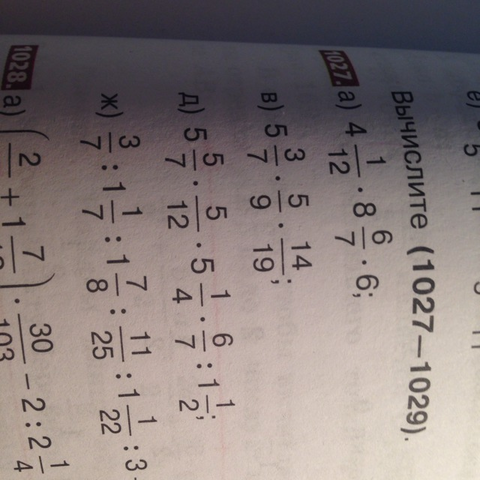 Вычислите (1027—1029).
1027. а) 4 1/12 · 8 6/7 · 6;
в) 5 3/7 · 5/9 · 14/19;
д) 5 5/7 · 5/12 · 5 1/4 · 6/7 : 1 1/2;
ж) 3/7 : 1 1/7 : 1 7/8 : 11/25 : 1 1/22 : 3
1028. а) (2/ + 1 7/) · 30/103 − 2 : 2 1/4